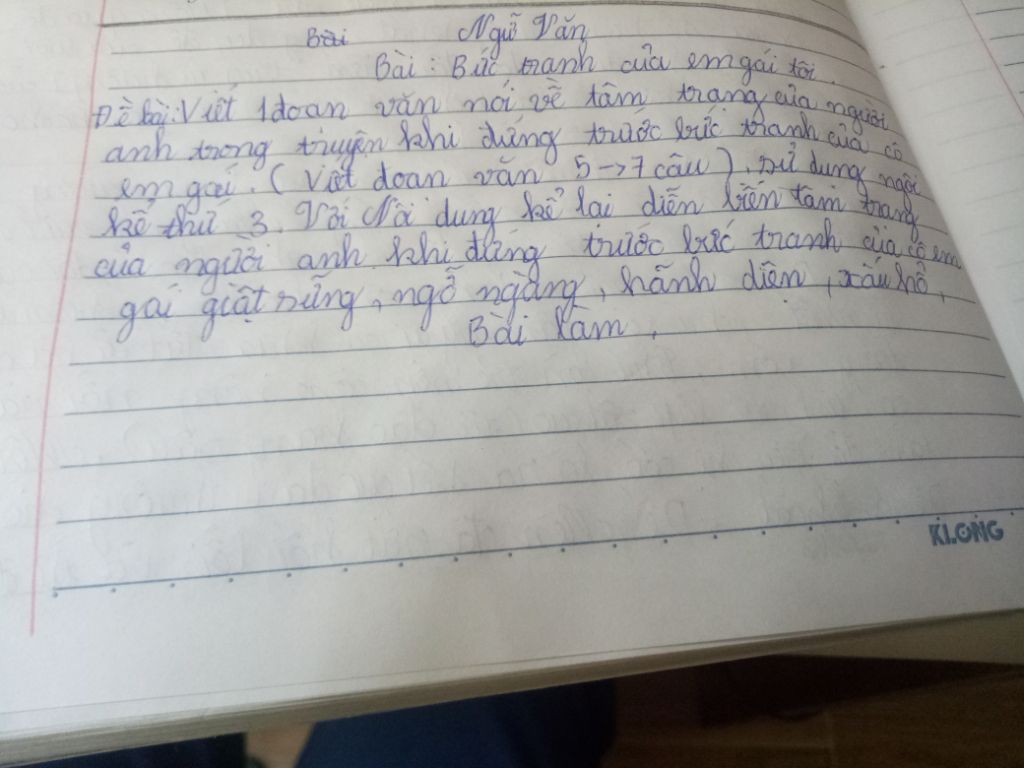 Bài Ngữ Văn
Bài : Bức tranh của em gái tôi.
Đề bài: Viết 1 đoan văn nói về tâm trạng của người
anh trong truyện khi đứng trước bức tranh của cô
em gái. ( Viết đoan văn 5 → 7 câu ). Sử dung ngôi
kể thứ 3. Với Nôi dung kể lại diễn biến tâm trang
của người anh khi đứng trước bức tranh của cô em
gái giật sững, ngỡ ngàng, hãnh diện, xấu hổ.
Bài làm.
KLONG